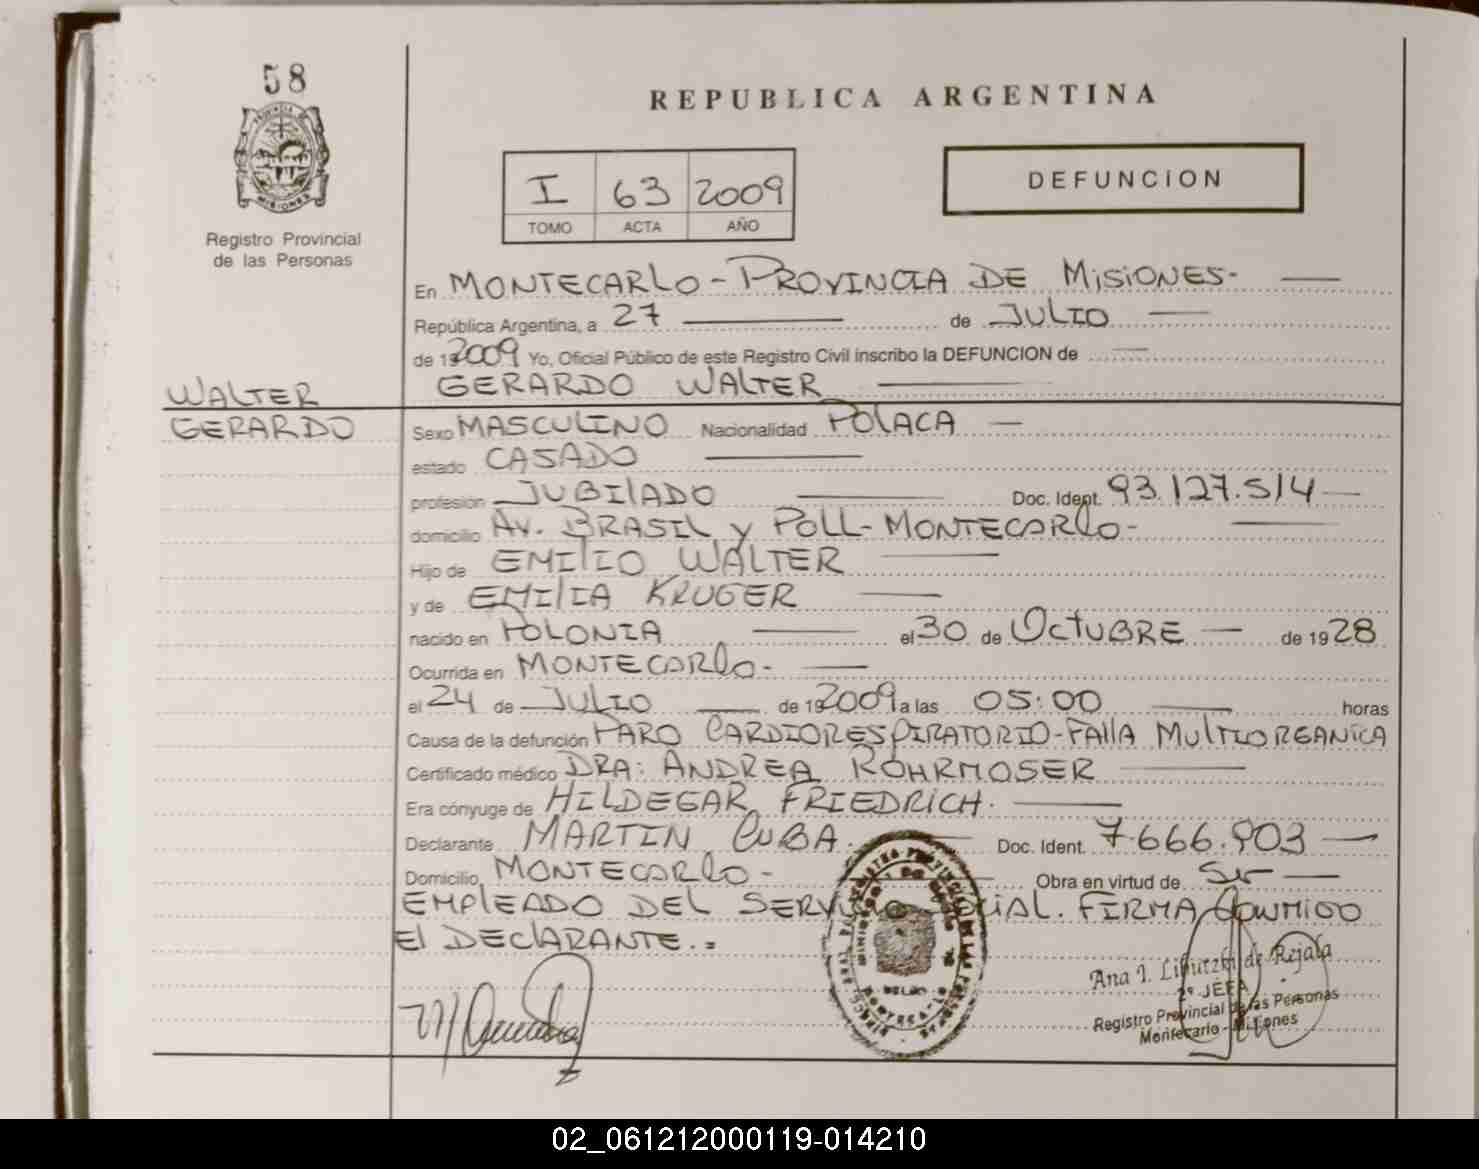 58
PROVINCIA D
MISIONES
Registro Provincial
de las Personas
REPUBLICA ARGENTINA
I 63 2009
TOMO ACTA AÑO
DEFUNCION
En MONTECARLO - PROVINCIA DE MISIONES-
República Argentina, a 27 de JULIO
de 192009 Yo, Oficial Público de este Registro Civil inscribo la DEFUNCION de
GERARDO WALTER
WALTER
GERARDO
Sexo MASCULINO Nacionalidad POLACA
estado CASADO
profesión JUBILADO Doc. Ident. 93.127.514
domicilio AV. BRASIL y POLL-MONTECARLO-
Hijo de EMILIO WALTER
y de EMILIA KRUGER
nacido en POLONIA el 30 de OCTUBRE de 1928
Ocurrida en MONTECARLO-
el 24 de JULIO de 192009 a las 05:00 horas
Causa de la defunción PARO CARDIORESPIRATORIO-FALLA MULTIORGANICA
Certificado médico DRA: ANDREA ROHRMOSER
Era cónyuge de HILDEGAR FRIEDRICH.
Declarante MARTIN CUBA. Doc. Ident. 7.666.903
Domicilio MONTECARLO- Obra en virtud de Ser
EMPLEADO DEL SERVICIO SOCIAL. FIRMA CONMIGO
El DECLARANTE..=
Ana I. de Rejala
2º JEFA
Registro Provincial de las Personas
Montecarlo - Misiones
02_061212000119-014210